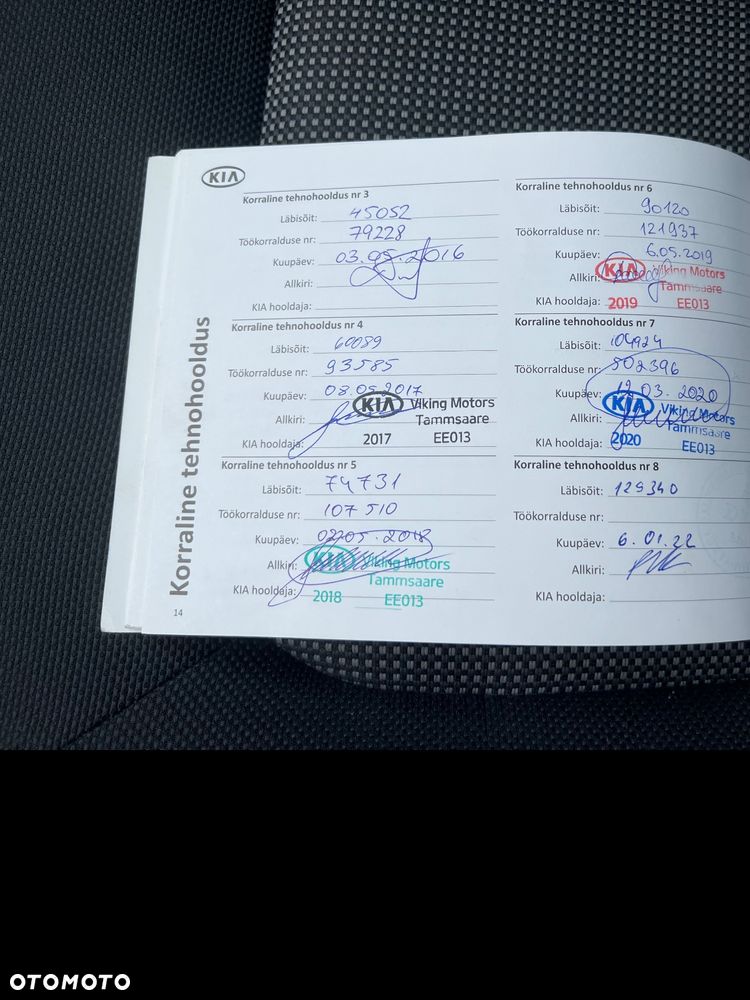 KIA
Korraline tehnohooldus
Korraline tehnohooldus nr 3
Läbisõit: 45052
Töökorralduse nr: 79228
Kuupäev: 03.05.2016
Allkiri:
KIA hooldaja:
Korraline tehnohooldus nr 4
Läbisõit: 60089
Töökorralduse nr: 93585
Kuupäev: 08.05.2017
Allkiri:
KIA hooldaja:
KIA Viking Motors
Tammsaare
2017 EE013
Korraline tehnohooldus nr 5
Läbisõit: 74731
Töökorralduse nr: 107510
Kuupäev: 02.05.2018
Allkiri:
KIA hooldaja:
KIA Viking Motors
Tammsaare
2018 EE013
14
Korraline tehnohooldus nr 6
Läbisõit: 90120
Töökorralduse nr: 121937
Kuupäev: 6.05.2019
Allkiri:
KIA hooldaja:
KIA Viking Motors
Tammsaare
2019 EE013
Korraline tehnohooldus nr 7
Läbisõit: 104924
Töökorralduse nr: 502396
Kuupäev: 12.03.2020
Allkiri:
KIA hooldaja:
KIA Viking Motors
Tammsaare
2020 EE013
Korraline tehnohooldus nr 8
Läbisõit: 129340
Töökorralduse nr:
Kuupäev: 6.01.22
Allkiri:
KIA hooldaja:
OTOMOTO